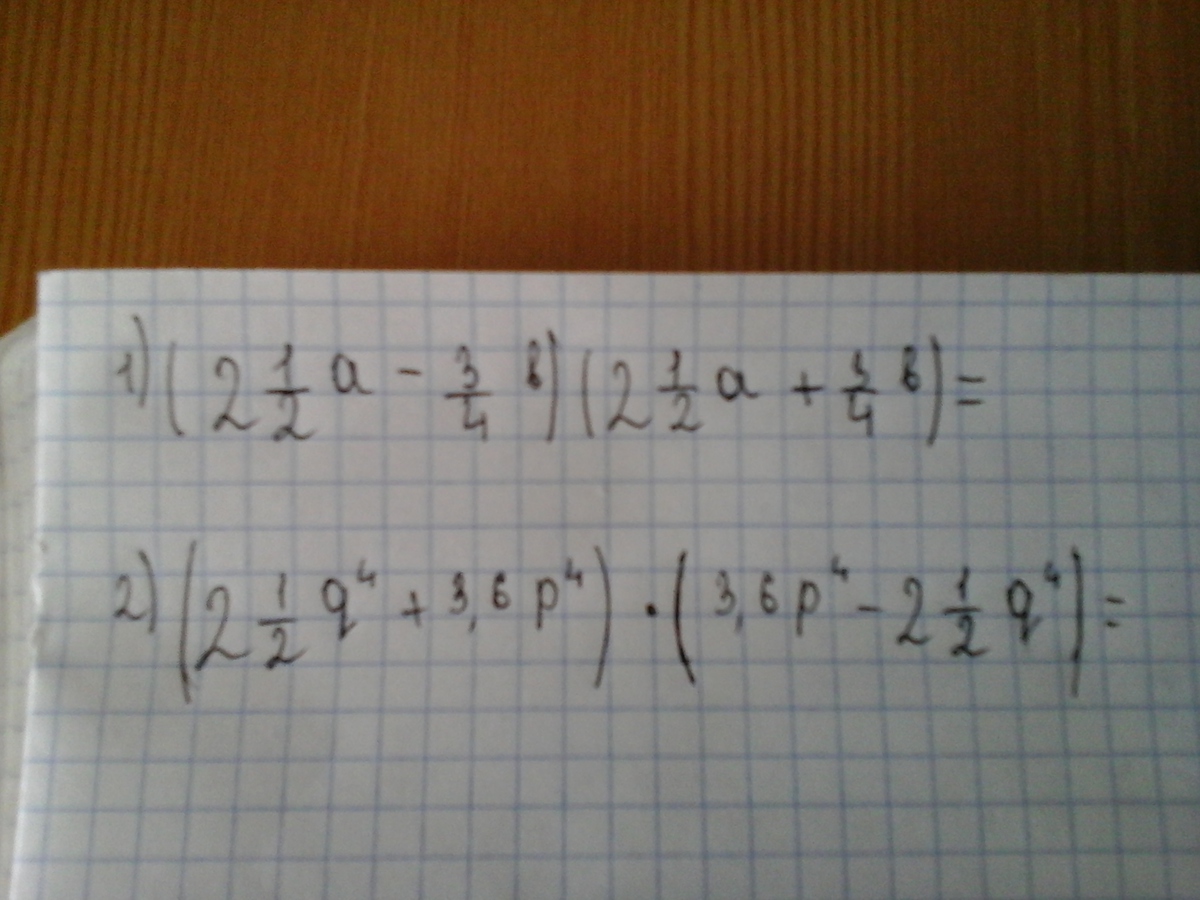 1) (2 1/2 a - 3/4 в) (2 1/2 a + 3/4 в) =
2) (2 1/2 q⁴ + 3,6 p⁴) · (3,6 p⁴ - 2 1/2 q⁴) =